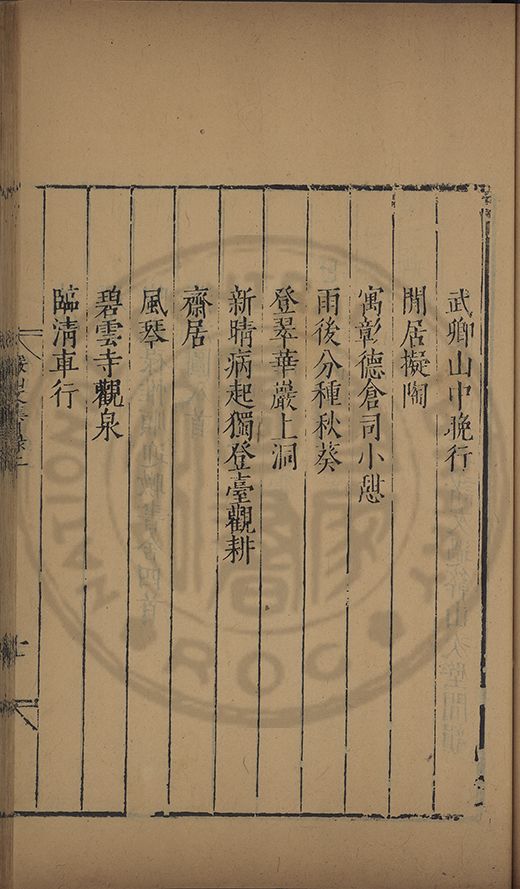 武卿山中晚行
閒居擬陶
寓彰德倉司小憇
雨後分種秋葵
登翠華巖上洞
新晴病起獨登臺觀耕
齋居
風琴
碧雲寺觀泉
臨清車行